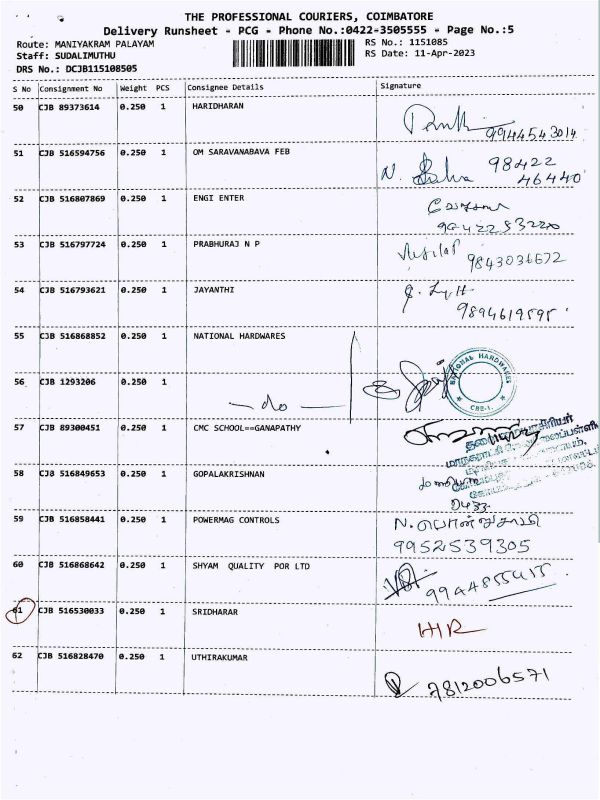 THE PROFESSIONAL COURIERS, COIMBATORE
Delivery Runsheet - PCG - Phone No.:0422-3505555 - Page No.:5
Route: MANIYAKRAM PALAYAM RS No.: 1151085
Staff: SUDALIMUTHU RS Date: 11-Apr-2023
DRS No.: DCJB115108505
S No Consignment No Weight PCS Consignee Details Signature
50 CJB 89373614 0.250 1 HARIDHARAN
9944543014
51 CJB 516594756 0.250 1 OM SARAVANABAVA FEB N. 98422
46440
52 CJB 516807869 0.250 1 ENGI ENTER
53 CJB 516797724 0.250 1 PRABHURAJ N P
9843036672
54 CJB 516793621 0.250 1 JAYANTHI
9894619595
55 CJB 516868852 0.250 1 NATIONAL HARDWARES
NATIONAL HARDWARES
CBE-1.
56 CJB 1293206 0.250 1
- do -
57 CJB 89300451 0.250 1 CMC SCHOOL==GANAPATHY
தலைமையாசிரியர்
58 CJB 516849653 0.250 1 GOPALAKRISHNAN
59 CJB 516858441 0.250 1 POWERMAG CONTROLS N.
9952539305
60 CJB 516868642 0.250 1 SHYAM QUALITY POR LTD
61 CJB 516530033 0.250 1 SRIDHARAR
HR
62 CJB 516828470 0.250 1 UTHIRAKUMAR
7812006571